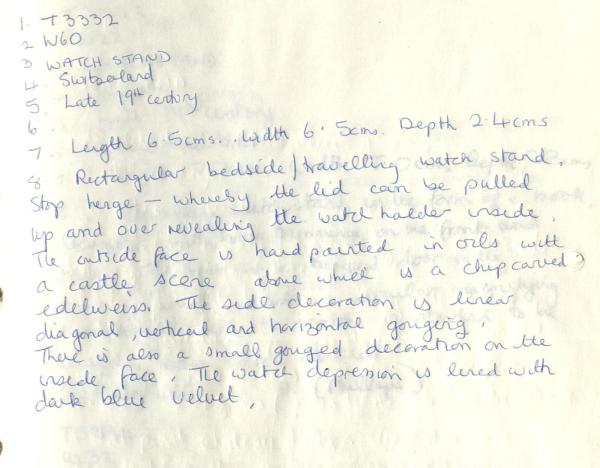 1. T3332
2 W60
3 WATCH STAND
4. Switzerland
5. Late 19th century
6.
7. Length 6.5cms.. Width 6.5cms. Depth 2.4cms
8. Rectangular bedside/travelling watch stand.
Stop henge – whereby the lid can be pulled
up and over revealing the watch holder inside.
The outside face is hand painted in oils with
a castle scene above which is a chip carved
edelweiss. The side decoration is linear
diagonal, vertical and horizontal gouging.
There is also a small gouged decoration on the
inside face. The watch depression is lined with
dark blue velvet.